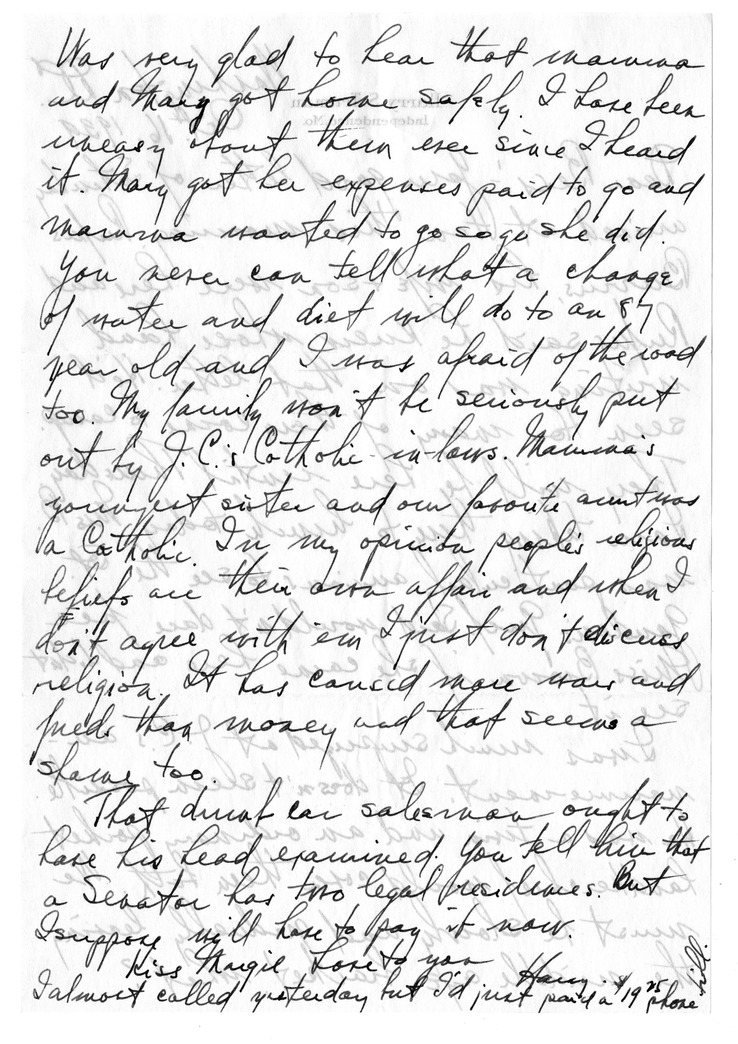 Was very glad to hear that mamma
and Mary got home safely. I have been
uneasy about them ever since I heard
it. Mary got her expenses paid to go and
mamma wanted to go so go she did.
You never can tell what a change
of water and diet will do to an 87
year old and I was afraid of the road
too. My family won't be seriously put
out by J.C.'s Catholic in-laws. Mamma's
youngest sister and our favorite aunt was
a Catholic. In my opinion people's religious
beliefs are their own affair and when I
don't agree with 'em I just don't discuss
religion. It has caused more wars and
feuds than money and that seems a
shame too.
That dumb car salesman ought to
have his head examined. You tell him that
a Senator has two legal residences. But
I suppose will have to pay it now.
Kiss Margie Love to you
Harry.
I almost called yesterday but I'd just paid a $19 25 phone
bill.